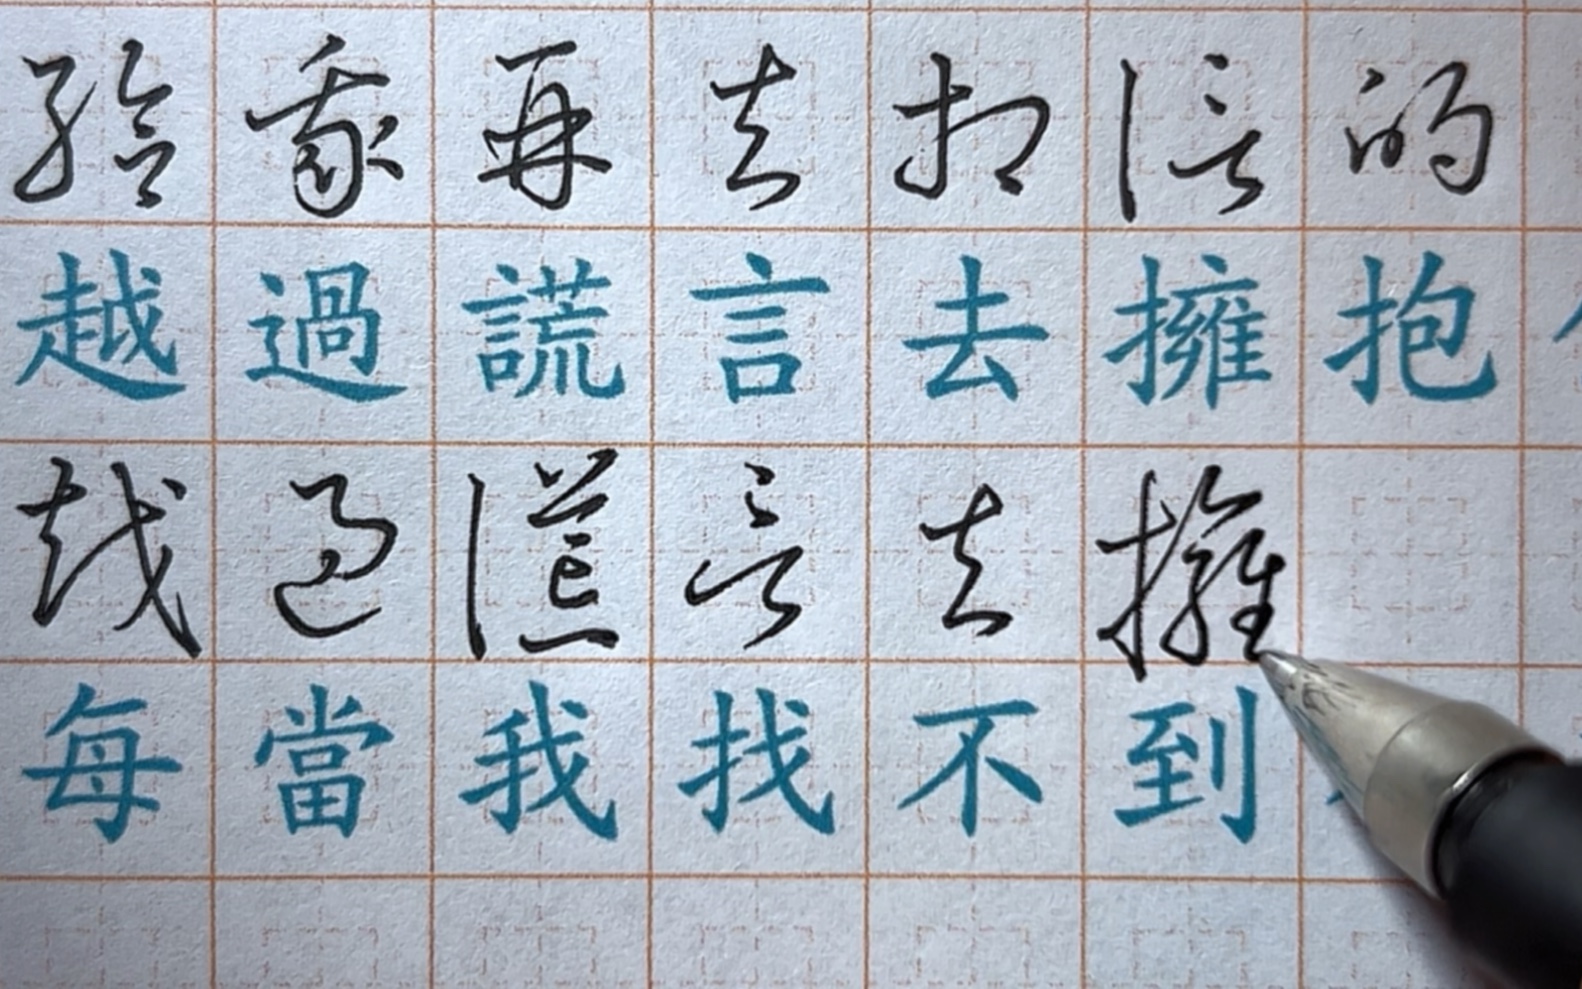 給我再去相信的
越過謊言去擁抱
越過謊言去擁
每當我找不到